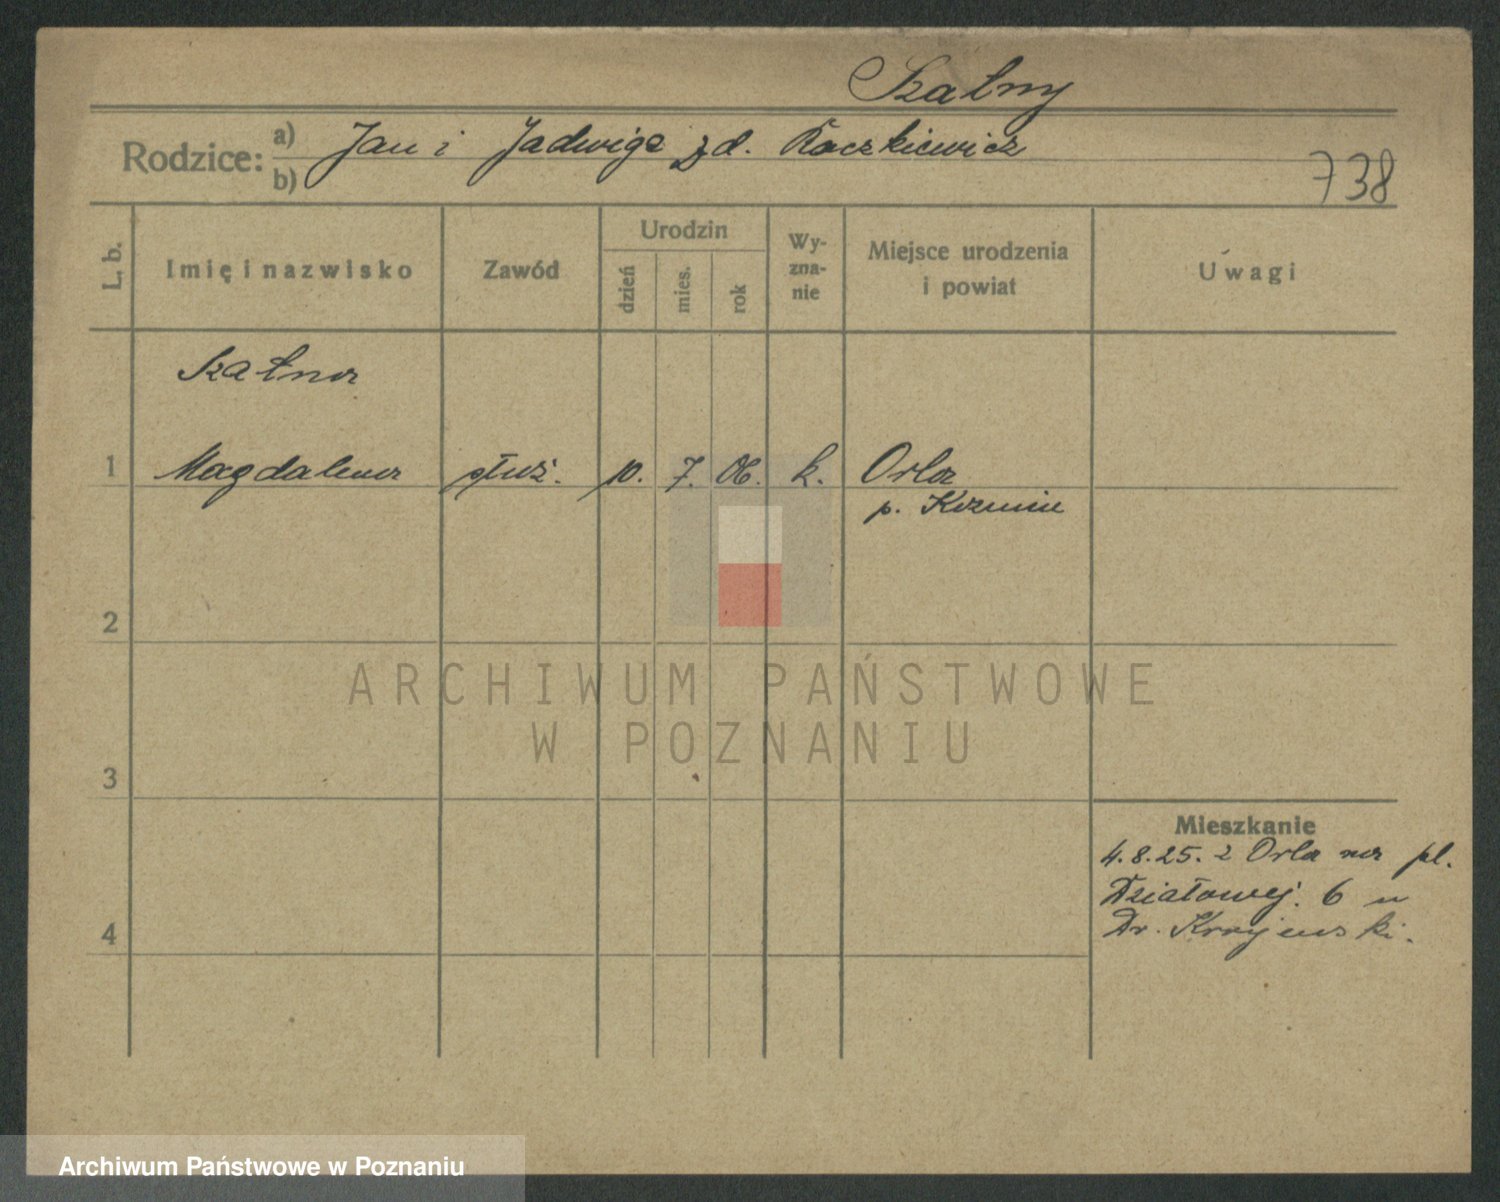 Szałny
Rodzice: a) Jan i Jadwiga zd. Kaczkiewicz
b)
738
L. b. Imię i nazwisko Zawód Urodzin dzień mies. rok Wy-zna-nie Miejsce urodzenia i powiat Uwagi
Szałna
1 Magdalena służ. 10. 7. 06. k. Orla
p. Koźmin
2
ARCHIWUM PAŃSTWOWE
W POZNANIU
3
Mieszkanie
4.8.25. z Orla na pl.
Działowej. 6 u
4 Dr. Krajewski.
Archiwum Państwowe w Poznaniu